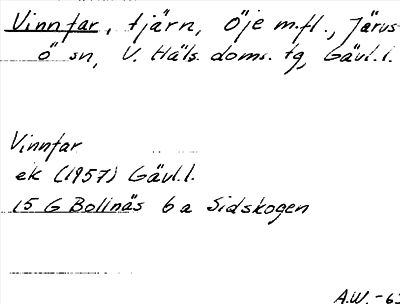 Vinnfar, tjärn, Öje m.fl., Järvs-
ö sn, V. Häls. doms. tg, Gävl.l.
Vinnfar
ek (1957) Gävl.l.
15 G Bollnäs 6 a Sidskogen
A.W. -63